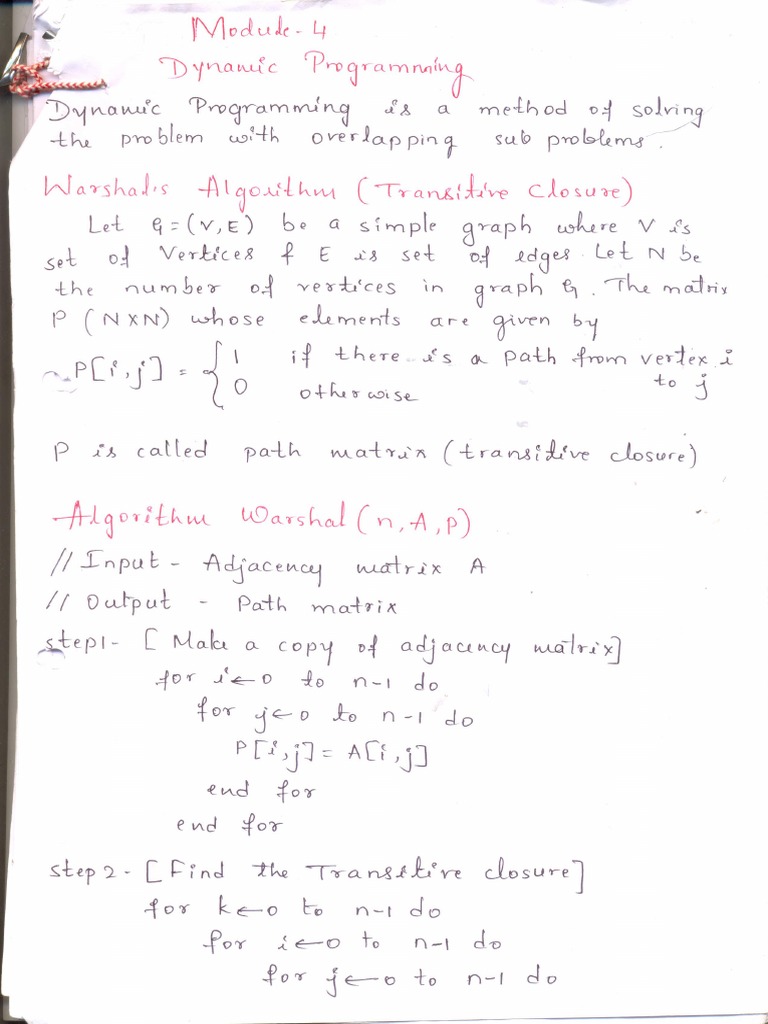 Module-4
Dynamic Programming
Dynamic Programming is a method of solving
the problem with overlapping sub problems.
Warshal's Algorithm (Transitive Closure)
Let G=(V,E) be a simple graph where V is
set of Vertices & E is set of edges. Let N be
the number of vertices in graph G. The matrix
P (N×N) whose elements are given by
P[i,j] = { 1 if there is a path from vertex i
to j
0 otherwise
P is called path matrix (transitive closure)
Algorithm Warshal(n,A,P)
// Input - Adjacency matrix A
// Output - Path matrix
step1- [ Make a copy of adjacency matrix]
for i←0 to n-1 do
for j←0 to n-1 do
P[i,j] = A[i,j]
end for
end for
step 2- [Find the Transitive closure]
for k←0 to n-1 do
for i←0 to n-1 do
for j←0 to n-1 do